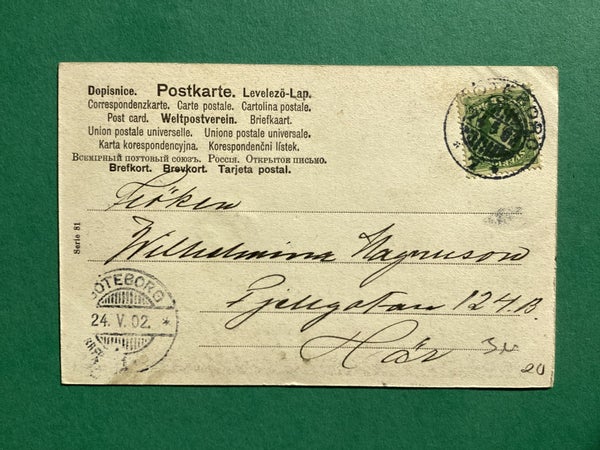 Dopisnice. Postkarte. Levelező-Lap.
Correspondenzkarte. Carte postale. Cartolina postale.
Post card. Weltpostverein. Briefkaart.
Union postale universelle. Unione postale universale.
Karta korrespondencyjna. Korespondenční lístek.
Всемірный почтовый союзъ. Россія. Открытое письмо.
Brefkort. Brevkort. Tarjeta postal.
Serie 81
Fröken
Wilhelmina Magnuson
124 B.
Här
GÖTEBORG
24. V. 02. *
20